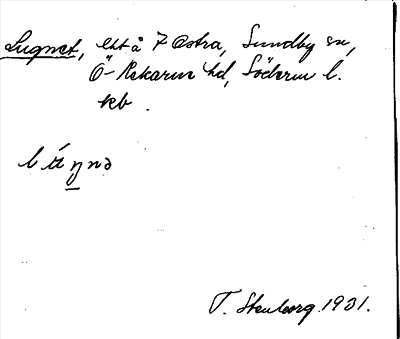 Lugnet, lht å 7 Östra, Sundby sn,
Ö-Rekarne hd, Söderm l.
kb.
T. Stenborg 1931.